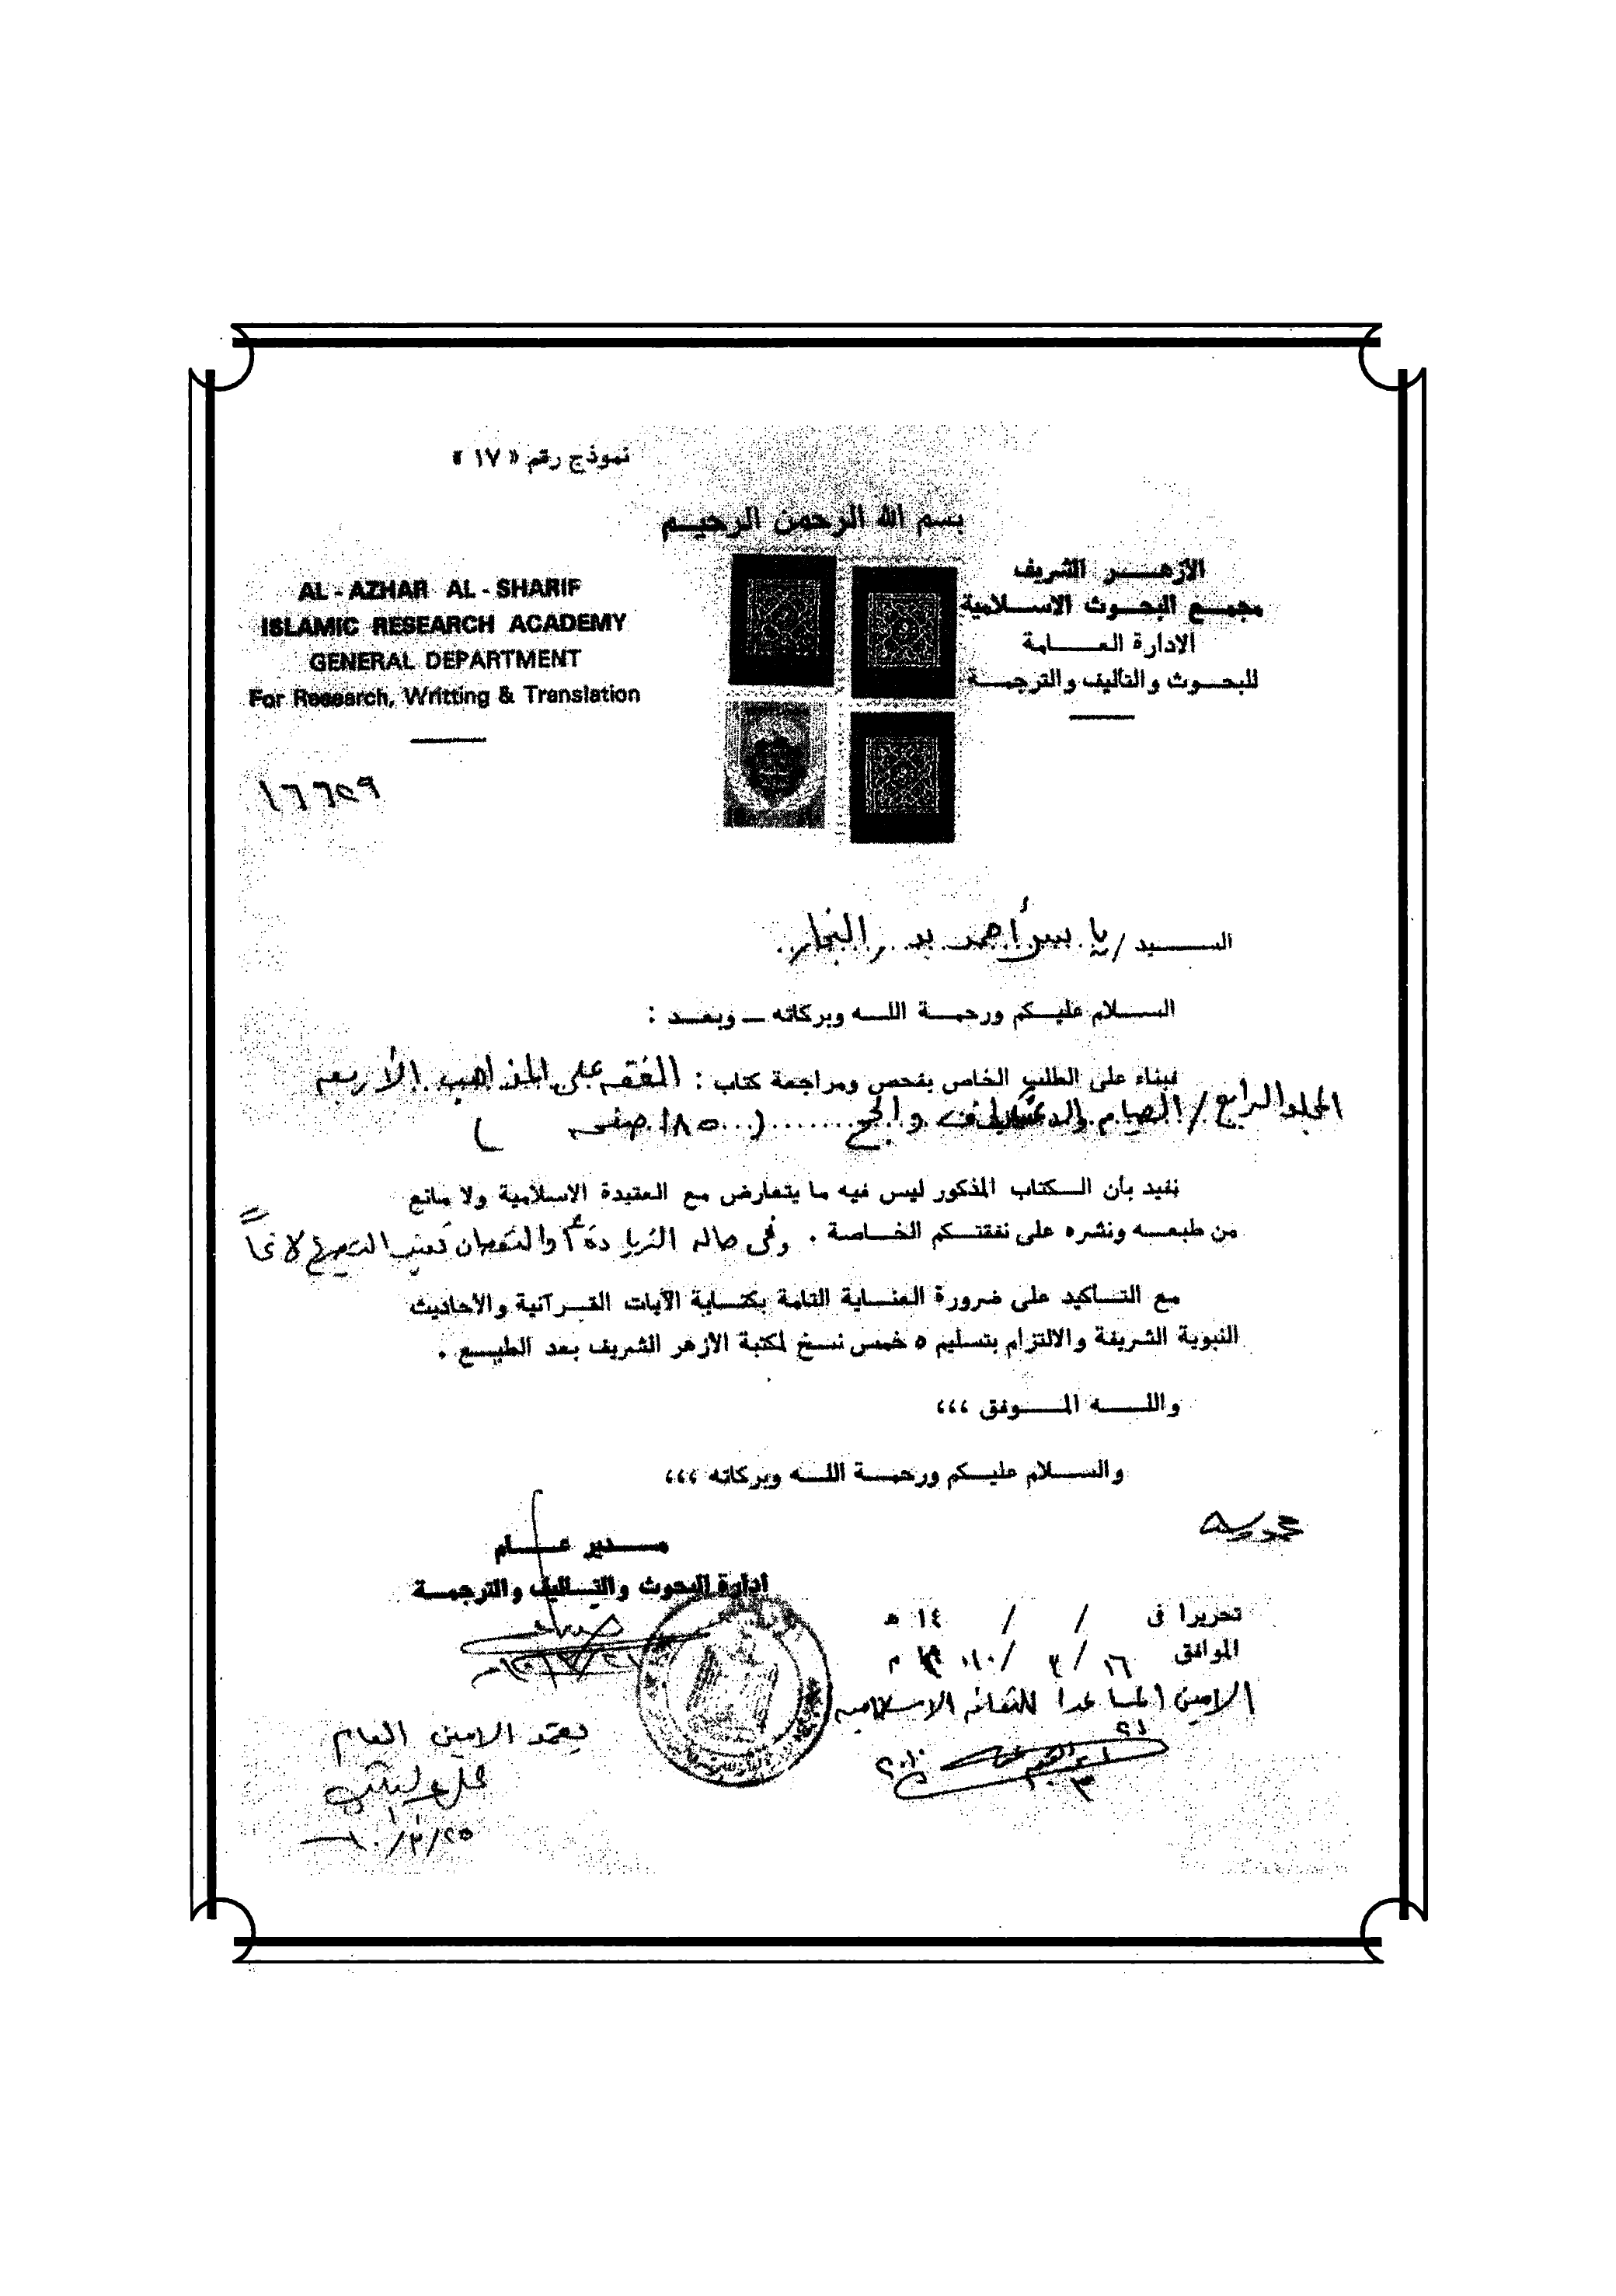 نموذج رقم « ١٧ »
بسم الله الرحمن الرحيم
الأزهر الشريف
مجمع البحوث الاسلامية
الادارة العامة
للبحوث والتأليف والترجمة
AL - AZHAR AL - SHARIF
ISLAMIC RESEARCH ACADEMY
GENERAL DEPARTMENT
For Research, Writting & Translation
١٦٦٥٩
السيد / ياسر أحمد بدر النجار
السلام عليكم ورحمة الله وبركاته — وبعد :
فبناء على الطلب الخاص بفحص ومراجعة كتاب : الفقه على المذاهب الأربعة
المجلد الرابع / الصيام والاعتكاف والحج ( ١٨٥ صفحه )
نفيد بأن الكتاب المذكور ليس فيه ما يتعارض مع العقيدة الاسلامية ولا مانع
من طبعه ونشره على نفقتكم الخاصة . وفى حاله الزيادة أو النقصان يعتبر التصريح لاغياً
مع التأكيد على ضرورة العناية التامة بكتابة الآيات القرآنية والأحاديث
النبوية الشريفة والالتزام بتسليم ٥ خمس نسخ لمكتبة الازهر الشريف بعد الطبع .
والله الموفق ،،،
والسلام عليكم ورحمة الله وبركاته ،،،
مدير عام
ادارة البحوث والتأليف والترجمة
تحريرا فى / / ١٤ هـ
الموافق ١٦ / ٣ / ٢٠١٠ م
الامين المساعد للثقافه الاسلاميه
يعتمد الامين العام
٢٥/٣/١٠